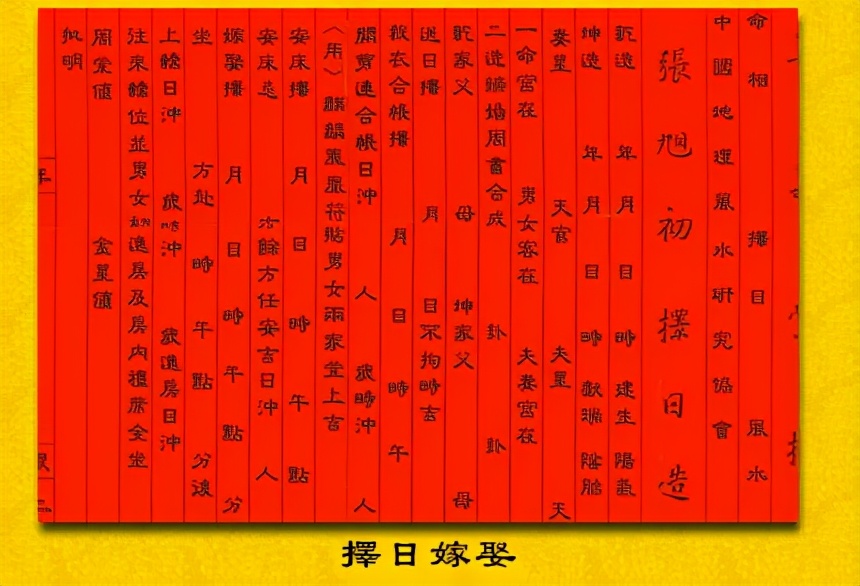 命相 擇日 風水
中國地理風水研究協會
張旭初擇日造
乾造 年 月 日 時建生 陽氣
坤造 年 月 日 時 陰胎
妻星 天官 夫星 天
一命宮在 男女宮在 夫妻宮在
二造婚周書合成 卦 卦
乾家父 母 坤家父 母
送日擇 月 日不拘時吉
裁衣合帳擇 月 日 時 午
開剪連合帳日沖 人 歲時沖 人
(用)麒麟鳳凰符貼男女兩家堂上吉
安床擇 月 日 時 午 點
安床忌 餘方任安吉日沖 人
嫁娶擇 月 日 時 午 點 分
坐 方 時 午 點 分進
上轎日沖 歲時沖 歲進房日沖
往來轎位並男女進房及房內禮席全坐
周堂值 金星值
批明
擇日嫁娶